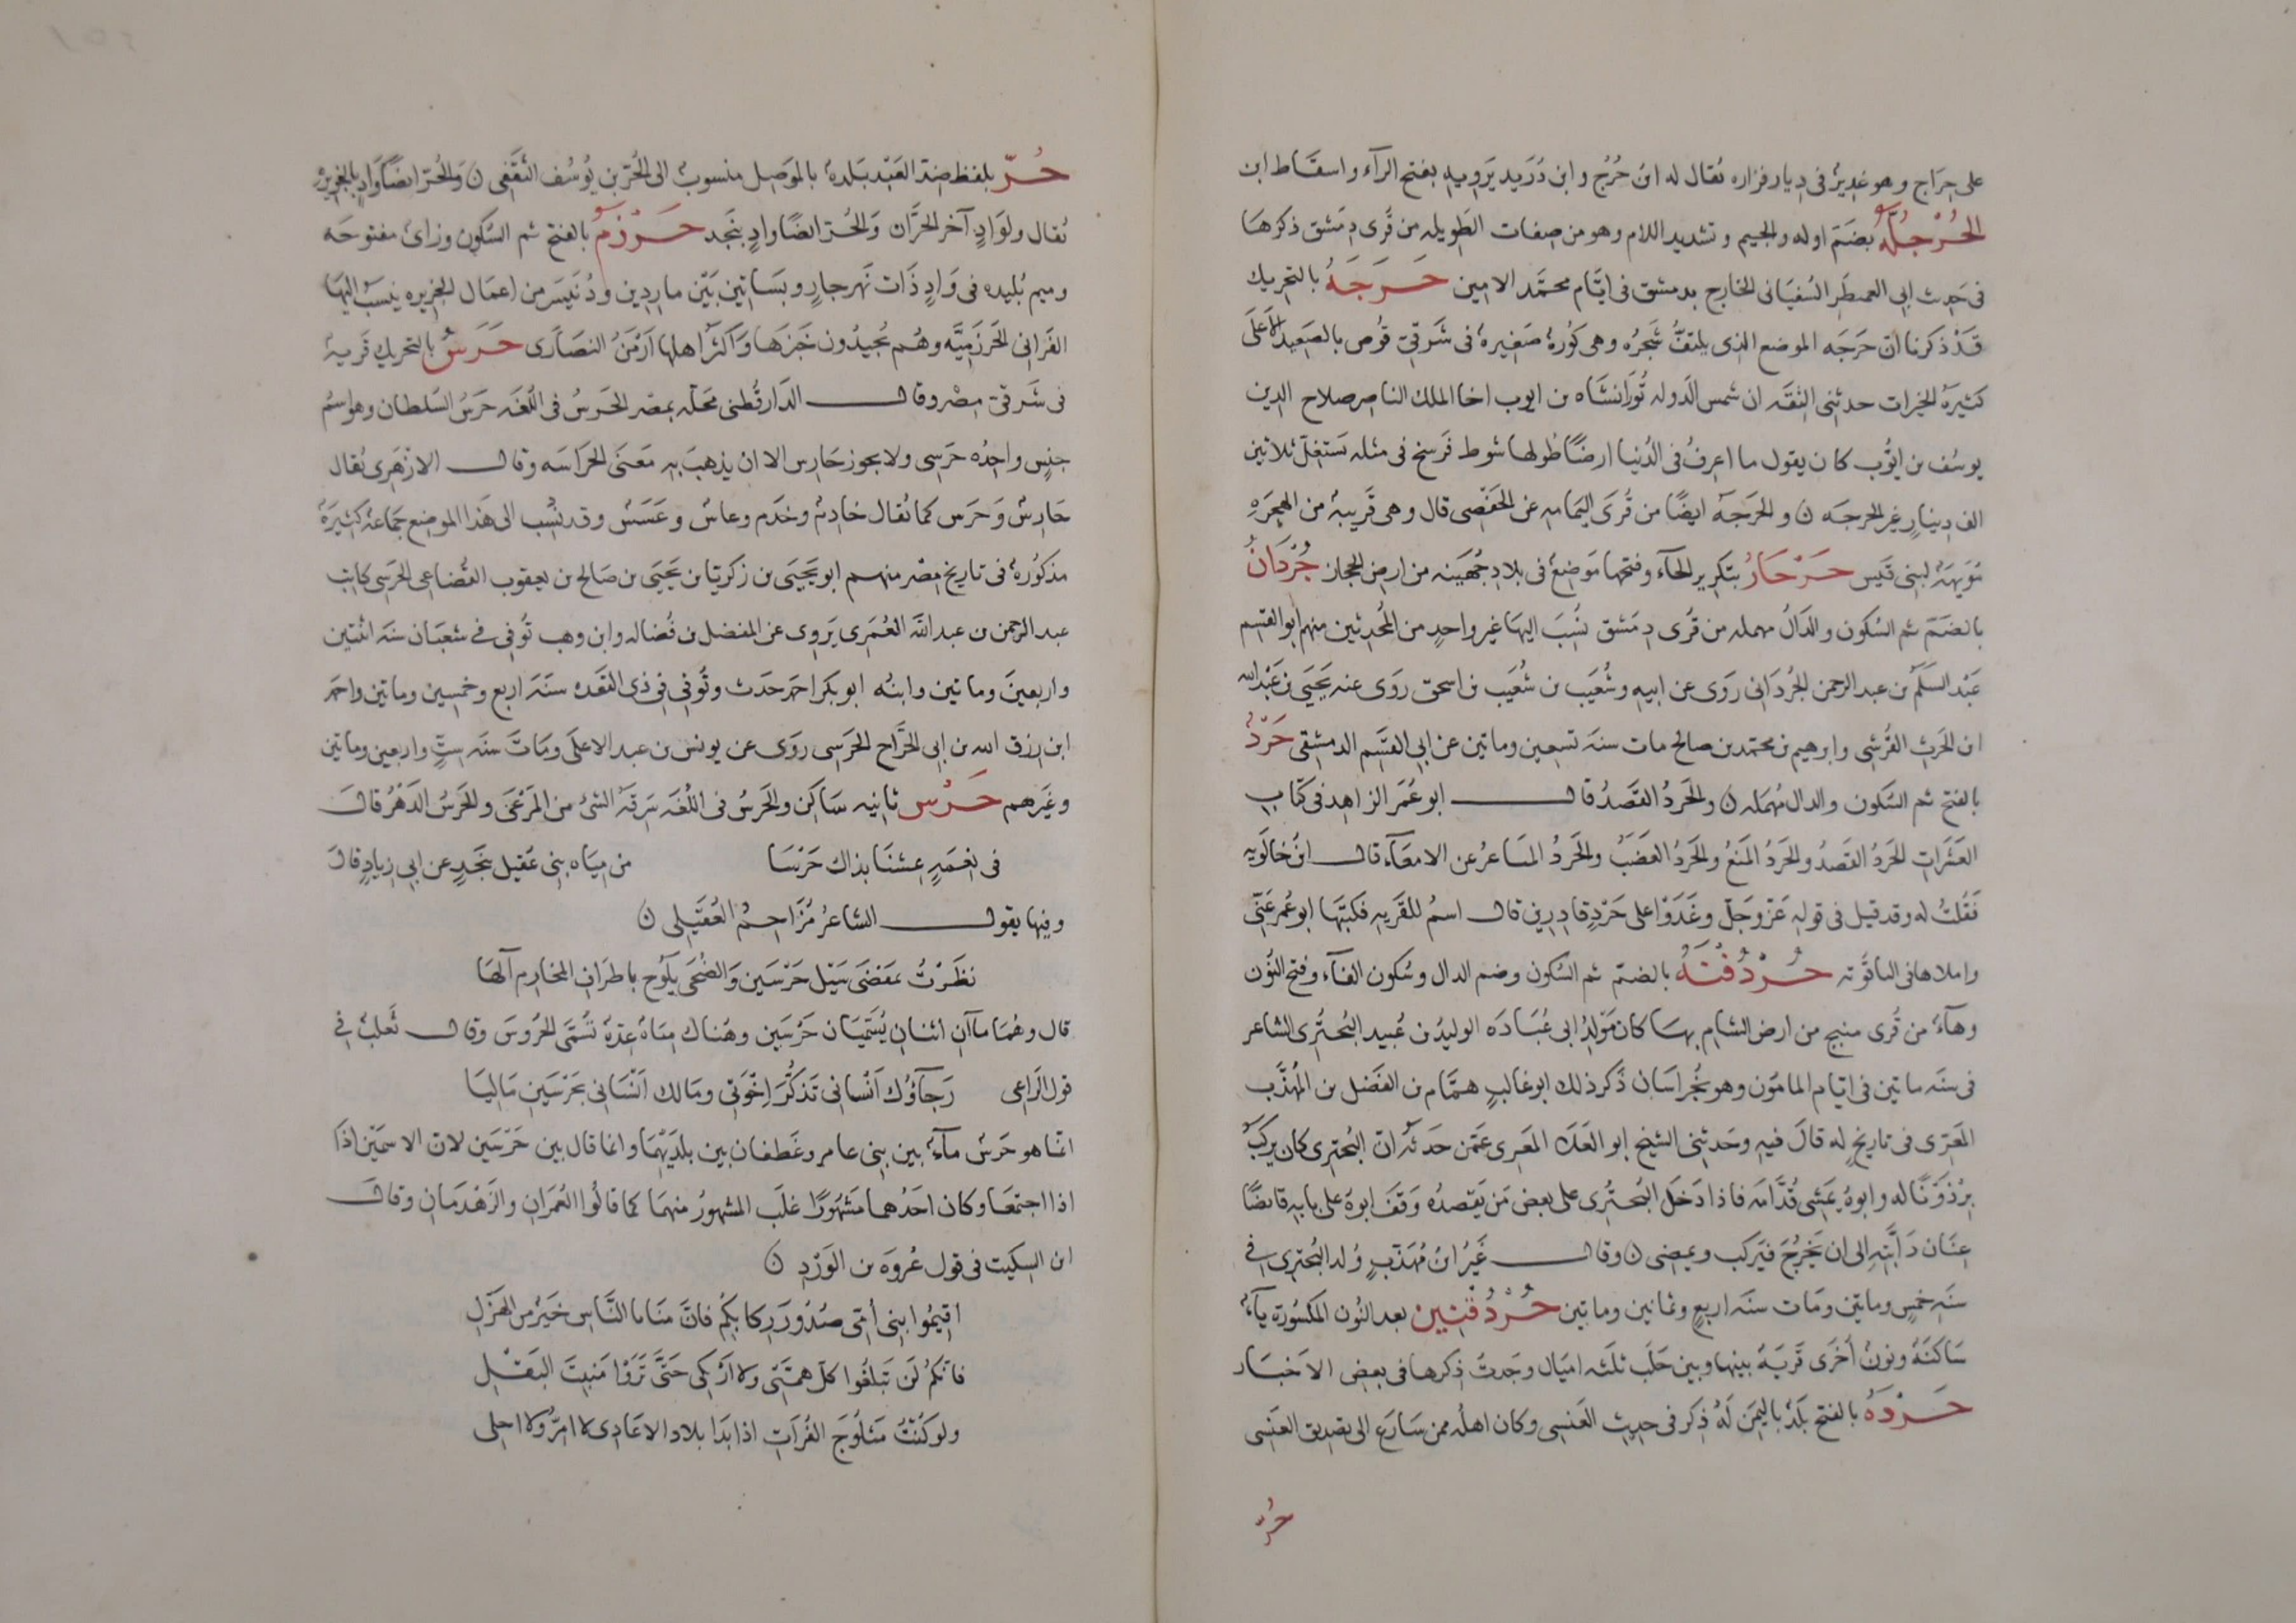 على حراج وهو غدير فى ديار فزاره يقال له ابن حرج وابن دريد يرويه بفتح الرآء واسقاط ابن
الحُرْجُلَّه بضم اوله والجيم وتشديد اللام وهو من صفات الطويله من قرى دمشق ذكرها
فى حديث ابى العميطر السفيانى الخارج بدمشق فى ايام محمد الامين حَرَجَه بالتحريك
قد ذكرنا ان حرجه الموضع الذى يلتف شجره وهى كورة صغيرة فى شرقى قوص بالصعيد الاعلى
كثيرة الخيرات حدثنى الثقه ان شمس الدوله تورانشاه بن ايوب اخا الملك الناصر صلاح الدين
يوسف بن ايوب كان يقول ما اعرف فى الدنيا ارضا طولها شوط فرسخ فى مثله تستغل ثلاثين
الف دينار غير الحرجه ن والحرجه ايضا من قرى اليمامه عن الحفصى قال وهى قريبة من الهجره
نويهة لبنى قيس حَرْحَارُ بتكرير الحآء وفتحها موضع فى بلاد جهينه من ارض الحجاز حُرْدَانُ
بالضم ثم السكون والدال مهمله من قرى دمشق نسب اليها غير واحد من المحدثين منهم ابو القسم
عبد السلم بن عبد الرحمن الحردانى روى عن ابيه وشعيب بن شعيب بن اسحق روى عنه يحيى بن عبد الله
ابن الحرث القرشى وابرهيم بن محمد بن صالح مات سنة تسعين وماتين عن ابى القسم الدمشقى حَرْدٌ
بالفتح ثم السكون والدال مهمله ن والحرد القصد قال ابو عمر الزاهد فى كتاب
العشرات الحرد القصد والحرد المنع والحرد الغضب والحرد المباعر عن الامعآء قال ابن خالويه
فقلت له وقد قيل فى قوله عز وجل وغدوا على حرد قادرين قال اسم للقريه فكتبها ابو عمر عنى
واملاها فى الياقوته حُرْدُفْنَهُ بالضم ثم السكون وضم الدال وسكون الفآء وفتح النون
وهآء من قرى منبج من ارض الشام بها كان مولد ابى عبادَه الوليد بن عبيد البحترى الشاعر
فى سنه ماتين فى ايام المامون وهو بخراسان ذكر ذلك ابو غالب همام بن الفضل بن المهذب
المعرى فى تاريخ له قال فيه وحدثنى الشيخ ابو العلآ المعرى عمن حدثه ان البحترى كان يركب
برذونا له وابوه يمشى قدامه فاذا دخل البحترى على بعض من يقصده وقف ابوه على بابه قابضا
عنان دابته الى ان يخرج فيركب ويمضى ن وقال غير ابن مهذب ولد البحترى فى
سنه خمس وماتين ومات سنه اربع وثمانين وماتين حُرْدُفْنِين بعد النون المكسورة يآء
ساكنة ونون أخرى قرية بينها وبين حلب ثلثه اميال وجدت ذكرها فى بعض الاخبار
حَرْدَهُ بالفتح بلد باليمن له ذكر فى حديث العنسى وكان اهله ممن سارع الى تصديق العنسى
حُرّ
حُرّ بلفظ ضد العبد بلدة بالموصل منسوب الى الحر بن يوسف الثقفى ن والحر ايضا واد بالجزيرة
يقال ولواد آخر الحران والحر ايضا واد بنجد حَرْزَمُ بالفتح ثم السكون وزاى مفتوحه
وميم بليده فى واد ذات نهر جار وبساتين بين ماردين ودنيسر من اعمال الجزيره ينسب اليها
الفرانى الحرزميه وهم يجيدون خبزها واكثر اهلها ارمن النصارى حَرَسُ بالتحريك قرية
فى شرقى مصر وقال الدارقطنى محلّه بمصر الحرس فى اللغه حرس السلطان وهو اسم
جنس واحده حرسى ولا يجوز حارس الا ان يذهب به معنى الحراسه وقال الازهرى يقال
حارس وحرس كما يقال خادم وخدم وعاس وعسس وقد نسب الى هذا الموضع جماعة كثيرة
مذكورة فى تاريخ مصر منهم ابو يحيى بن زكريا بن يحيى بن صالح بن يعقوب القضاعى الحرسى كاتب
عبد الرحمن بن عبد الله العمرى يروى عن المفضل بن فضاله وابن وهب توفى فى شعبان سنه اثنتين
واربعين وماتين وابنه ابو بكر احمد حدث وتوفى فى ذى القعده سنة اربع وخمسين وماتين واحمد
ابن رزق الله بن ابى الجراح الحرسى روى عن يونس بن عبد الاعلى ومات سنه ست واربعين وماتين
وغيرهم حَرْس ثانيه ساكن والحرس فى اللغه سرقه الشئ من المرعى والحرس الدهر قال
فى نعمة عشنا بذاك حرسا من مياه بنى عقيل بنجد عن ابى زياد قال
وفيها يقول الشاعر مزاحم العقيلى ن
نظرت بمفضى سيل حرسين والضحى يلوح باطراف المخارم آلها
قال وهما مآان اثنان يسميان حرسين وهناك مياه عدة تسمى الحروس وقال ثعلب فى
قول الراعى رجآؤك انسانى تذكر اخوتى ومالك انسانى بحرسين ماليا
انما هو حرس مآء بين بنى عامر وغطفان بين بلديهما وانما قال بين حرسين لان الاسمين اذا
اذا اجتمعا وكان احدهما مشهورا غلب المشهور منهما كما قالوا العمران والزهدمان وقال
ابن السكيت فى قول عروه بن الورد ن
اقيموا بنى أمى صدور ركابكم فان منايا الناس خير من الهزل
فانكم لن تبلغوا كل همتى ولا اربى حتى تروا منبت البقل
ولو كنت مثلوج الفرآت اذا بدا بلاد الاعادى لا امر ولا احلى